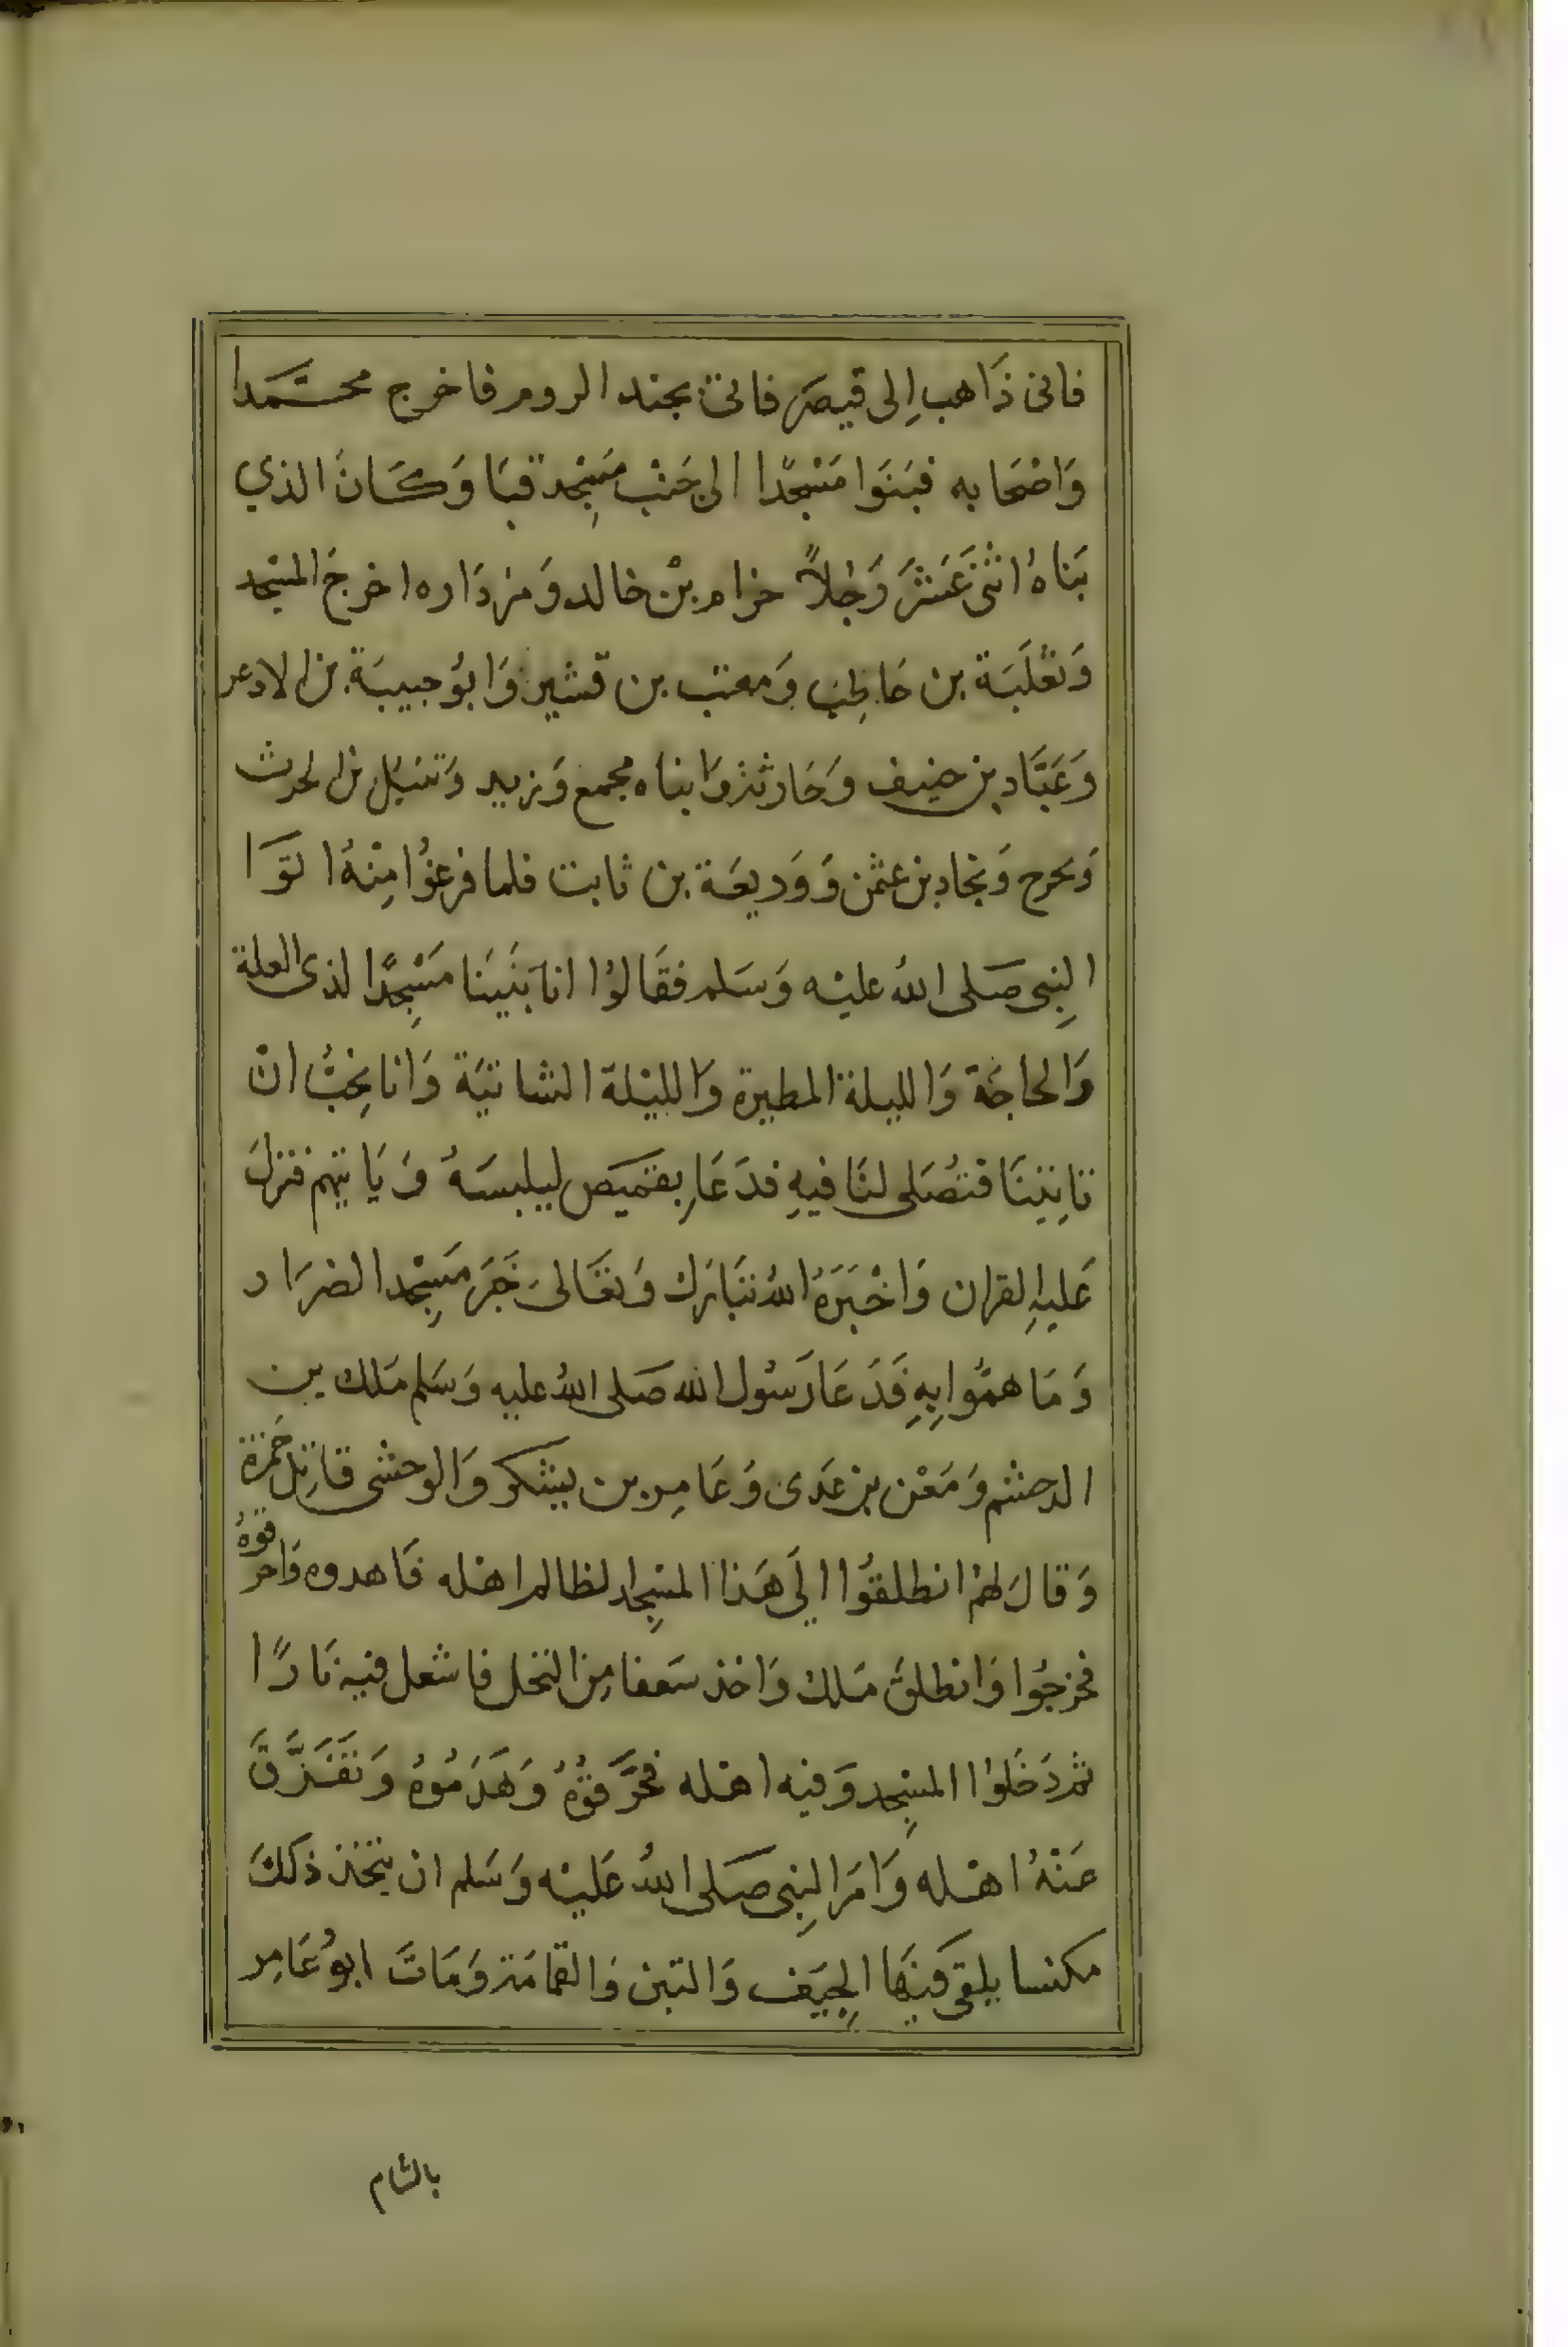 فانى ذَاهب اِلى قيصَر فاتىٓ بجند الروم فاخرج محمَّدا
وَاصْحَابه فبَنَوا مَسْجدًا الى جَنْب مَسْجِد قبَا وَكَانَ الذي
بَناهُ اثنى عَشَرَ رَجُلاً خزام بْن خالد وَمن دَاره اخرجَ المسْجد
وَثعْلَبَة بن حَاطِب وَمعتب بن قشير وَابوُ حبيبَة بن الادعر
وَعَبَّاد بن حنيف وَحَارثة وَابناه مجمع وَزيد وَنبتل بن الحرث
وَبحرج وَبجاد بن عثمن وَوَديعَة بن ثابت فلما فرغوُا مِنْهُ اتوَا
النِبى صَلى اللهُ عليْه وَسَلم فقَالوُا انا بَنَيْنَا مَسْجِدًا لذى العلة
وَالحاجَة وَالليلة المطيرة وَالليْلة الشاتيَة وَانا نحِبُّ انْ
تاتِيَنَا فتُصَلى لنَا فيهِ فدَعَا بِقميَص ليلبسَهُ وَيَاتيهم فنزلَ
عَليهِ القران وَاخْبَرَهُ اللهُ تبَارَك وَتعَالىَ خَبَرَ مَسْجِد الضرَار
وَمَا همُّوا بِهِ فَدَعَا رَسُول الله صَلى اللهُ عليه وَسَلم مَلك بن
الدحشم وَمَعْن بن عَدى وَعَامِر بن يشكر وَالوحشى قاتِل حَمزة
وَقالَ لهمْ انطلقوُا الىَ هَذا المسْجِد الظالم اهْله فَاهدوه وَاحرقوُهُ
فخرجُوا وَانطلقَ مَلكْ وَاخذ سَعفا مِن النخل فاشعل فيْه نَارًا
ثم دَخَلوْا المسْجِد وَفيه اهْله فحَرَّقوُهُ وَهَدَمُوهُ وَتفَرَّقَ
عَنْهُ اهْله وَامَرَ النِبى صَلى اللهُ عَليْه وَسَلم ان يتخذ ذلكَ
مكنسا يلقى فيَهَا الجِيَف وَالنتن وَالقمامَة وَمَاتَ ابوُ عَامِر
بالشام